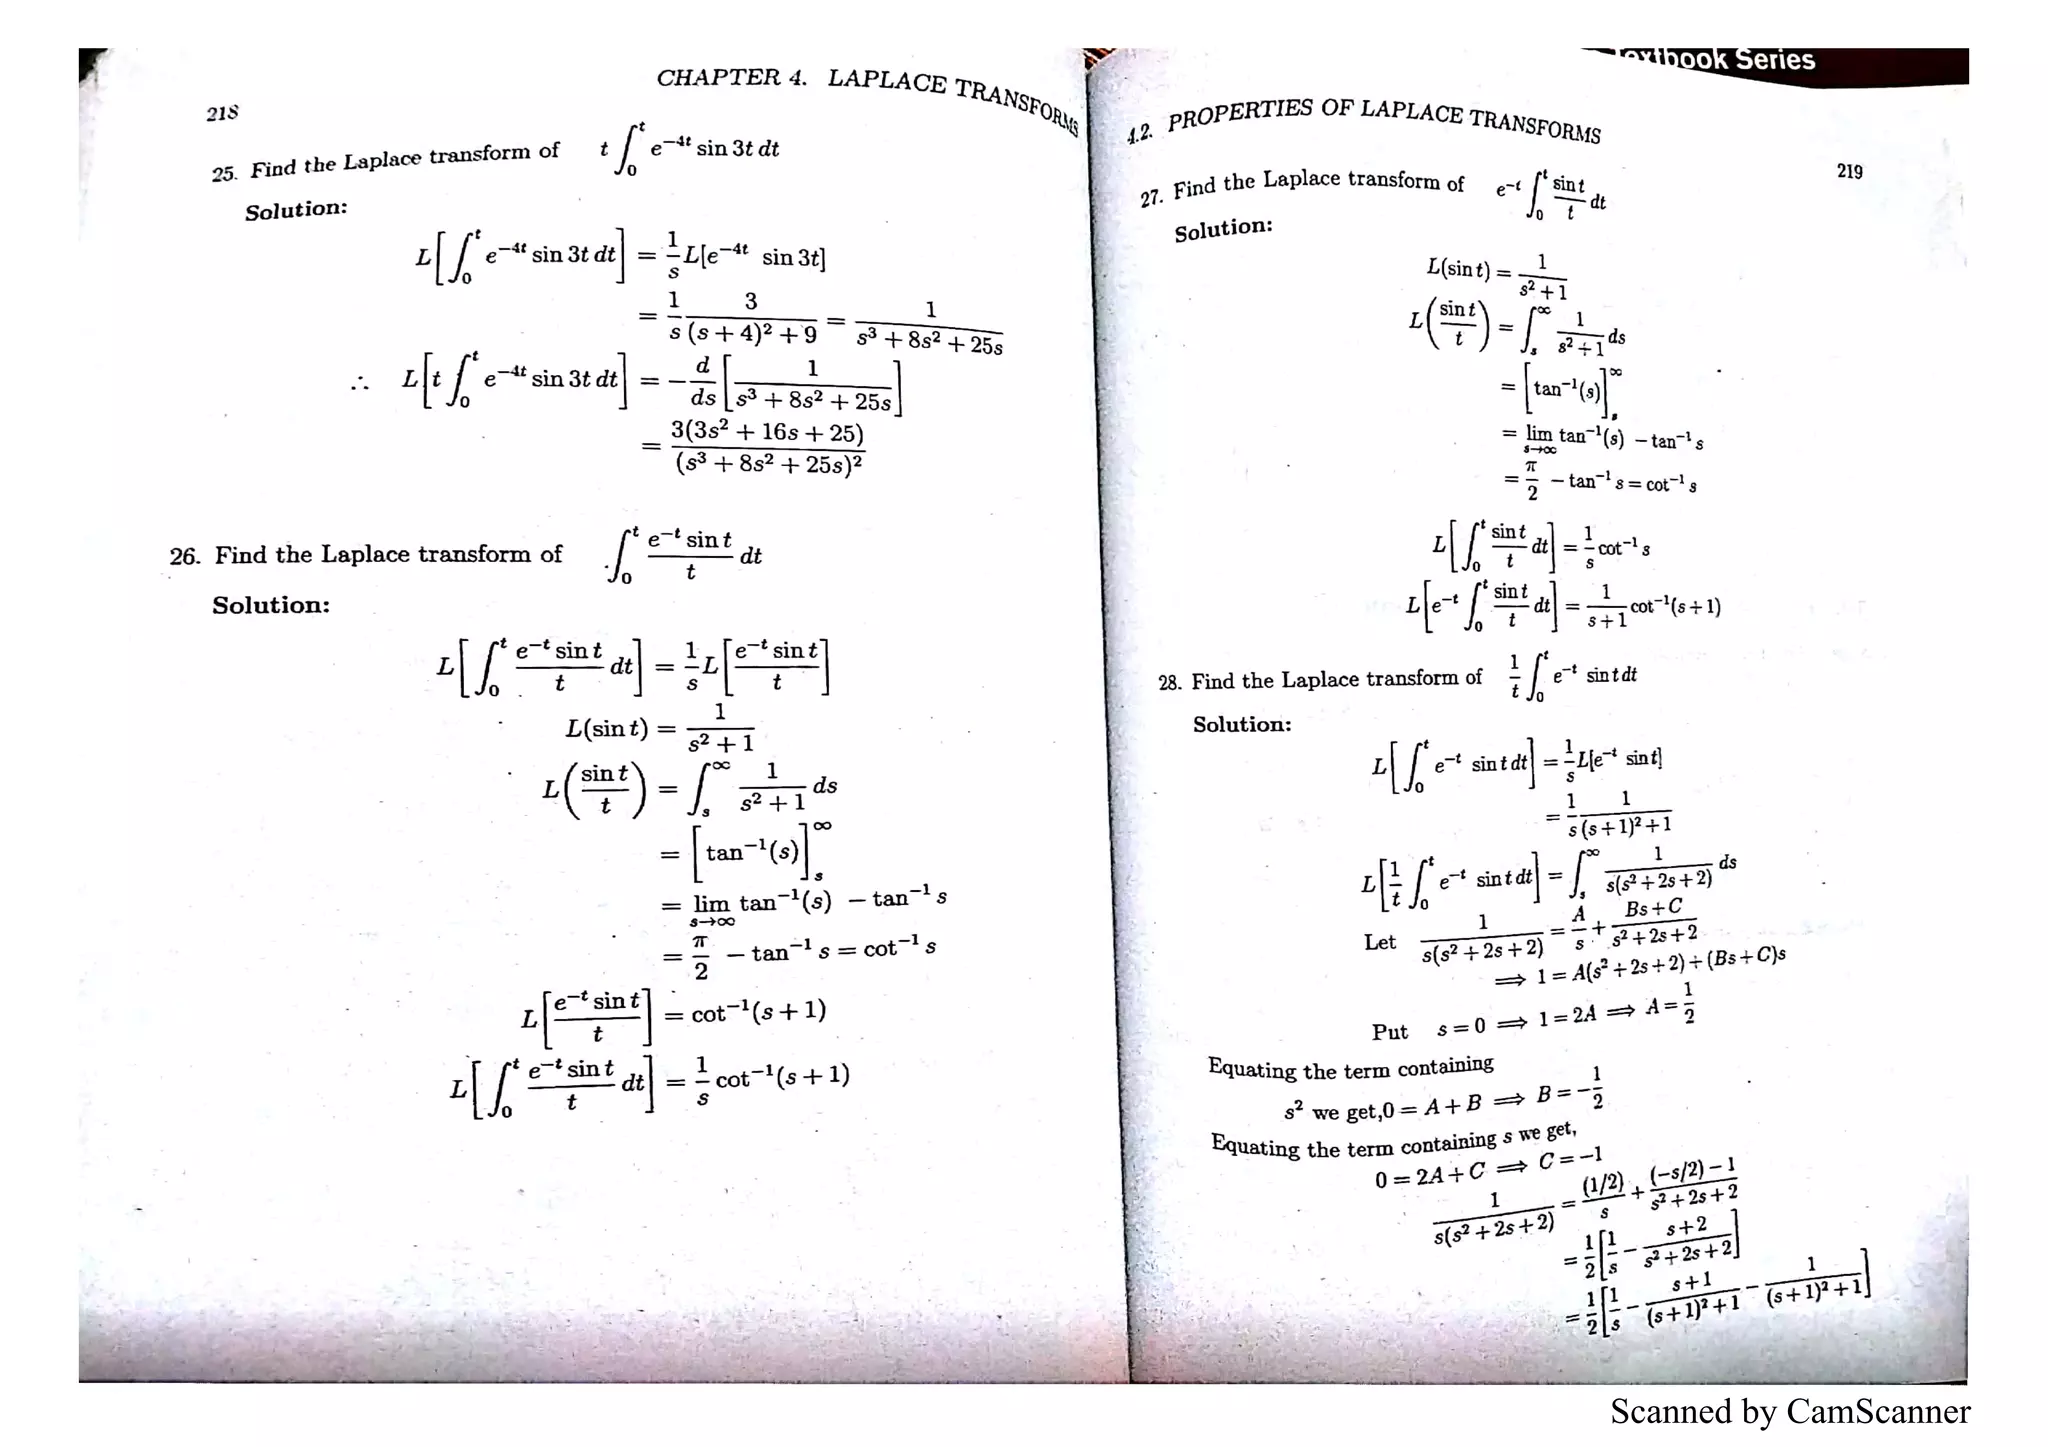 218
CHAPTER 4. LAPLACE TRANSFORMS
25. Find the Laplace transform of t ∫₀ᵗ e^{-4t} sin 3t dt
Solution:
L[∫₀ᵗ e^{-4t} sin 3t dt] = 1/s L[e^{-4t} sin 3t]
= 1/s 3/((s+4)² + 9) = 1/(s³ + 8s² + 25s)
∴ L[t ∫₀ᵗ e^{-4t} sin 3t dt] = -d/ds [1/(s³ + 8s² + 25s)]
= 3(3s² + 16s + 25)/(s³ + 8s² + 25s)²
26. Find the Laplace transform of ∫₀ᵗ (e^{-t} sin t)/t dt
Solution:
L[∫₀ᵗ (e^{-t} sin t)/t dt] = 1/s L[(e^{-t} sin t)/t]
L(sin t) = 1/(s² + 1)
L(sin t/t) = ∫ₛ^∞ 1/(s² + 1) ds
= [tan⁻¹(s)]ₛ^∞
= lim_{s→∞} tan⁻¹(s) − tan⁻¹ s
= π/2 − tan⁻¹ s = cot⁻¹ s
L[(e^{-t} sin t)/t] = cot⁻¹(s + 1)
L[∫₀ᵗ (e^{-t} sin t)/t dt] = 1/s cot⁻¹(s + 1)
textbook Series
4.2. PROPERTIES OF LAPLACE TRANSFORMS
219
27. Find the Laplace transform of e^{-t} ∫₀ᵗ sin t/t dt
Solution:
L(sin t) = 1/(s² + 1)
L(sin t/t) = ∫ₛ^∞ 1/(s² + 1) ds
= [tan⁻¹(s)]ₛ^∞
= lim_{s→∞} tan⁻¹(s) − tan⁻¹ s
= π/2 − tan⁻¹ s = cot⁻¹ s
L[∫₀ᵗ sin t/t dt] = 1/s cot⁻¹ s
L[e^{-t} ∫₀ᵗ sin t/t dt] = 1/(s+1) cot⁻¹(s + 1)
28. Find the Laplace transform of 1/t ∫₀ᵗ e^{-t} sin t dt
Solution:
L[∫₀ᵗ e^{-t} sin t dt] = 1/s L[e^{-t} sin t]
= 1/s 1/((s+1)² + 1)
L[1/t ∫₀ᵗ e^{-t} sin t dt] = ∫ₛ^∞ 1/(s(s² + 2s + 2)) ds
Let 1/(s(s² + 2s + 2)) = A/s + (Bs + C)/(s² + 2s + 2)
⟹ 1 = A(s² + 2s + 2) + (Bs + C)s
Put s = 0 ⟹ 1 = 2A ⟹ A = 1/2
Equating the term containing
s² we get,0 = A + B ⟹ B = −1/2
Equating the term containing s we get,
0 = 2A + C ⟹ C = −1
1/(s(s² + 2s + 2)) = (1/2)/s + ((−s/2) − 1)/(s² + 2s + 2)
= 1/2 [1/s − (s+2)/(s² + 2s + 2)]
= 1/2 [1/s − (s+1)/((s+1)² + 1) − 1/((s+1)² + 1)]
Scanned by CamScanner